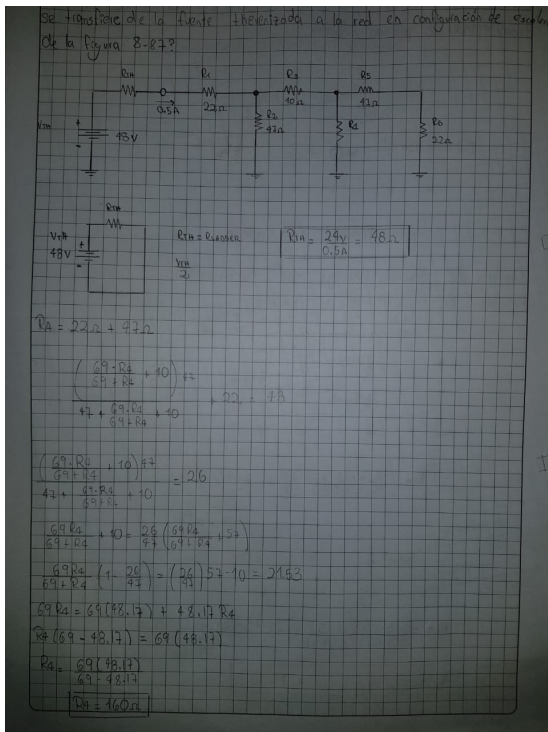 se transfiere de la fuente thevenizada a la red en configuración de
de la figura 8-87?
RTH
R1
R3
R5
0.5A
22Ω
10Ω
47Ω
VTH
+
48V
-
R2
47Ω
R4
R6
22Ω
RTH
VTH
48V
+
-
RTH = RLADDER
VTH
2
RTH = 24V / 0.5A = 48Ω
RA = 22Ω + 47Ω
(69·R4 / 69+R4 + 10) 47 / 47 + 69·R4 / 69+R4 + 10 + 22 = 48
(69·R4 / 69+R4 + 10) 47 / 47 + 69·R4 / 69+R4 + 10 = 26
69R4 / 69+R4 + 10 = 26/47 (69R4 / 69+R4 + 57)
69R4 / 69+R4 (1 - 26/47) = (26/47) 57-10 = 21.53
69R4 = 69(48.17) + 48.17 R4
R4(69-48.17) = 69(48.17)
R4 = 69(48.17) / 69-48.17
R4 = 160Ω